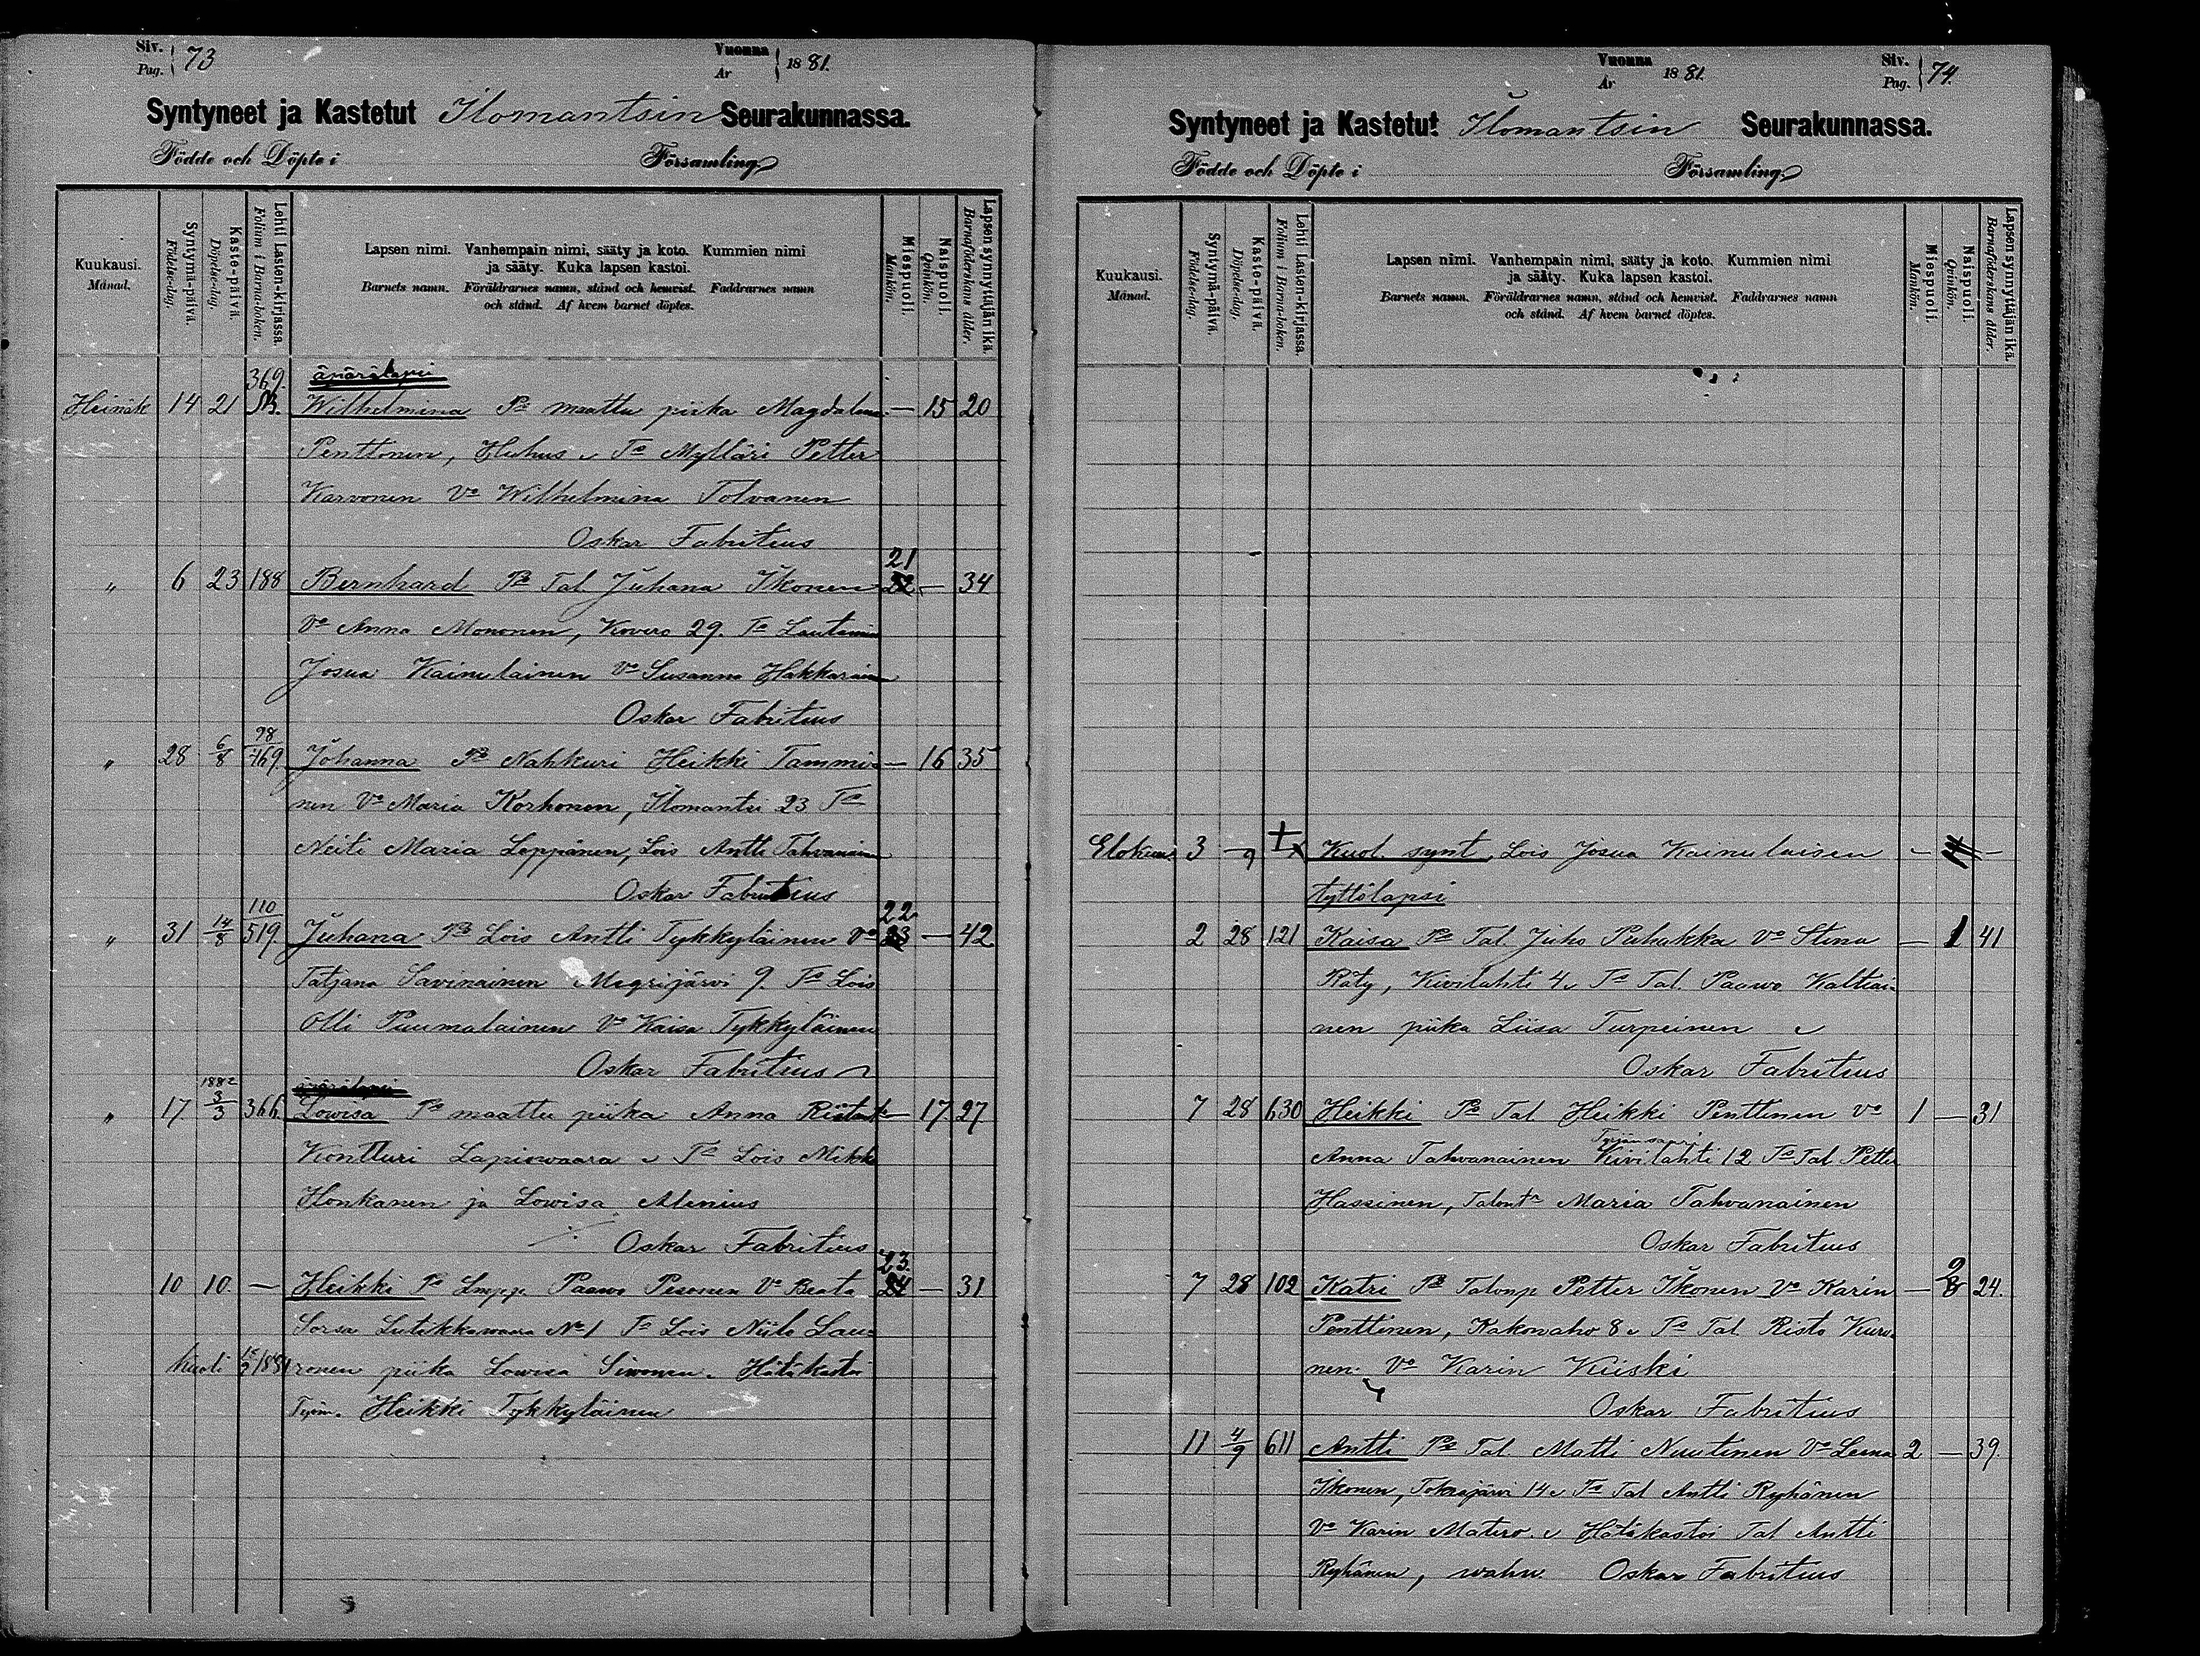 Siv. Pag. 73 Vuonna År 1881.
Syntyneet ja Kastetut Ilomantsin Seurakunnassa.
Födde och Döpte i Församling
Kuukausi. Månad.
Syntymä-päivä. Födelse-dag.
Kaste-päivä. Döpelse-dag.
Lehti Lasten-kirjassa. Folium i Barna-boken.
Lapsen nimi. Vanhempain nimi, sääty ja koto. Kummien nimi
ja sääty. Kuka lapsen kastoi.
Barnets namn. Föräldrarnes namn, stånd och hemvist. Faddrarnes namn
och stånd. Af hvem barnet döptes.
Miespuoli. Mankön.
Naispuoli. Qvinkön.
Lapsen synnyttäjän ikä. Barnaföderskans ålder.
369. äpärälapsi
Heinäk 14 21 Wilhelmina Ps maattu piika Magdalena — 15 20
Penttonen, Huhus Ts Mylläri Petter
Karvonen Vo Wilhelmina Tolvanen
Oskar Fabritius
21
" 6 23 188 Bernhard Ps Tal Juhana Ikonen 22 — 34
Vo Anna Mononen, Kovero 29. Ts
Josua Kainulainen Vo Susanna Hakkarainen
Oskar Fabritius
98
" 28 6/8 469. Johanna Ps Nahkuri Heikki Tammi- — 16 35
nen Vo Maria Korhonen, Ilomantsi 23 Ts
Neiti Maria Leppänen, Lois Antti Tahvanainen
Oskar Fabritius
110 22
" 31 14/8 519. Juhana Ps Lois Antti Tykkyläinen Vo 23 — 42
Tatjana Savinainen Megrijärvi 9. Ts Lois
Olli Puumalainen Vo Kaisa Tykkyläinen
Oskar Fabritius
1882 äpärälapsi
" 17 3/3 366 Lowisa Ps maattu piika Anna — 17 27
Kontturi Lapiowaara Ts Lois Mikko
Honkanen ja Lowisa Alenius
Oskar Fabritius
23.
10 10. — Heikki Ps Lmpp Paawo Pesonen Vo Beata 24 — 31
Sorsa Lutikkawaara No 1 Ts Lois Niilo Lau-
kuoli 1881 ronen piika Lowisa Siwonen. Hätäkastoi
Heikki Tykkyläinen
Vuonna År 1881. Siv. Pag. 74.
Syntyneet ja Kastetut Ilomantsin Seurakunnassa.
Födde och Döpte i Församling
Kuukausi. Månad.
Syntymä-päivä. Födelse-dag.
Kaste-päivä. Döpelse-dag.
Lehti Lasten-kirjassa. Folium i Barna-boken.
Lapsen nimi. Vanhempain nimi, sääty ja koto. Kummien nimi
ja sääty. Kuka lapsen kastoi.
Barnets namn. Föräldrarnes namn, stånd och hemvist. Faddrarnes namn
och stånd. Af hvem barnet döptes.
Miespuoli. Mankön.
Naispuoli. Qvinkön.
Lapsen synnyttäjän ikä. Barnaföderskans ålder.
Elokuu 3 — + Kuol. synt. Lois Josua Kainulaisen — —
tyttölapsi
2 28 121 Kaisa Ps Tal Juho Puhakka Vo Stina — 1 41
Räty, Kivilahti 4 Ts Tal. Paawo Kaltiai-
nen piika Liisa Turpeinen
Oskar Fabritius
7 28 630 Heikki Ps Tal Heikki Penttinen Vo 1 — 31
Anna Tahvanainen Kivilahti 12 Ts Tal Petter
Hassinen, Talontr Maria Tahvanainen
Oskar Fabritius
7 28 102 Katri Ps Talonp Petter Ikonen Vo Karin — 2 24.
Penttinen, Kakonaho 8 Ts Tal Risto Kuru-
nen Vo Karin Kiiski
Oskar Fabritius
11 4/9 611 Antti Ps Tal Matti Nuutinen Vo Leena 2 — 39.
Ikonen, Tokrajärvi 14 Ts Tal Antti Ryhänen
Vo Karin Matero. Hätäkastoi Tal Antti
Ryhänen, wahw. Oskar Fabritius